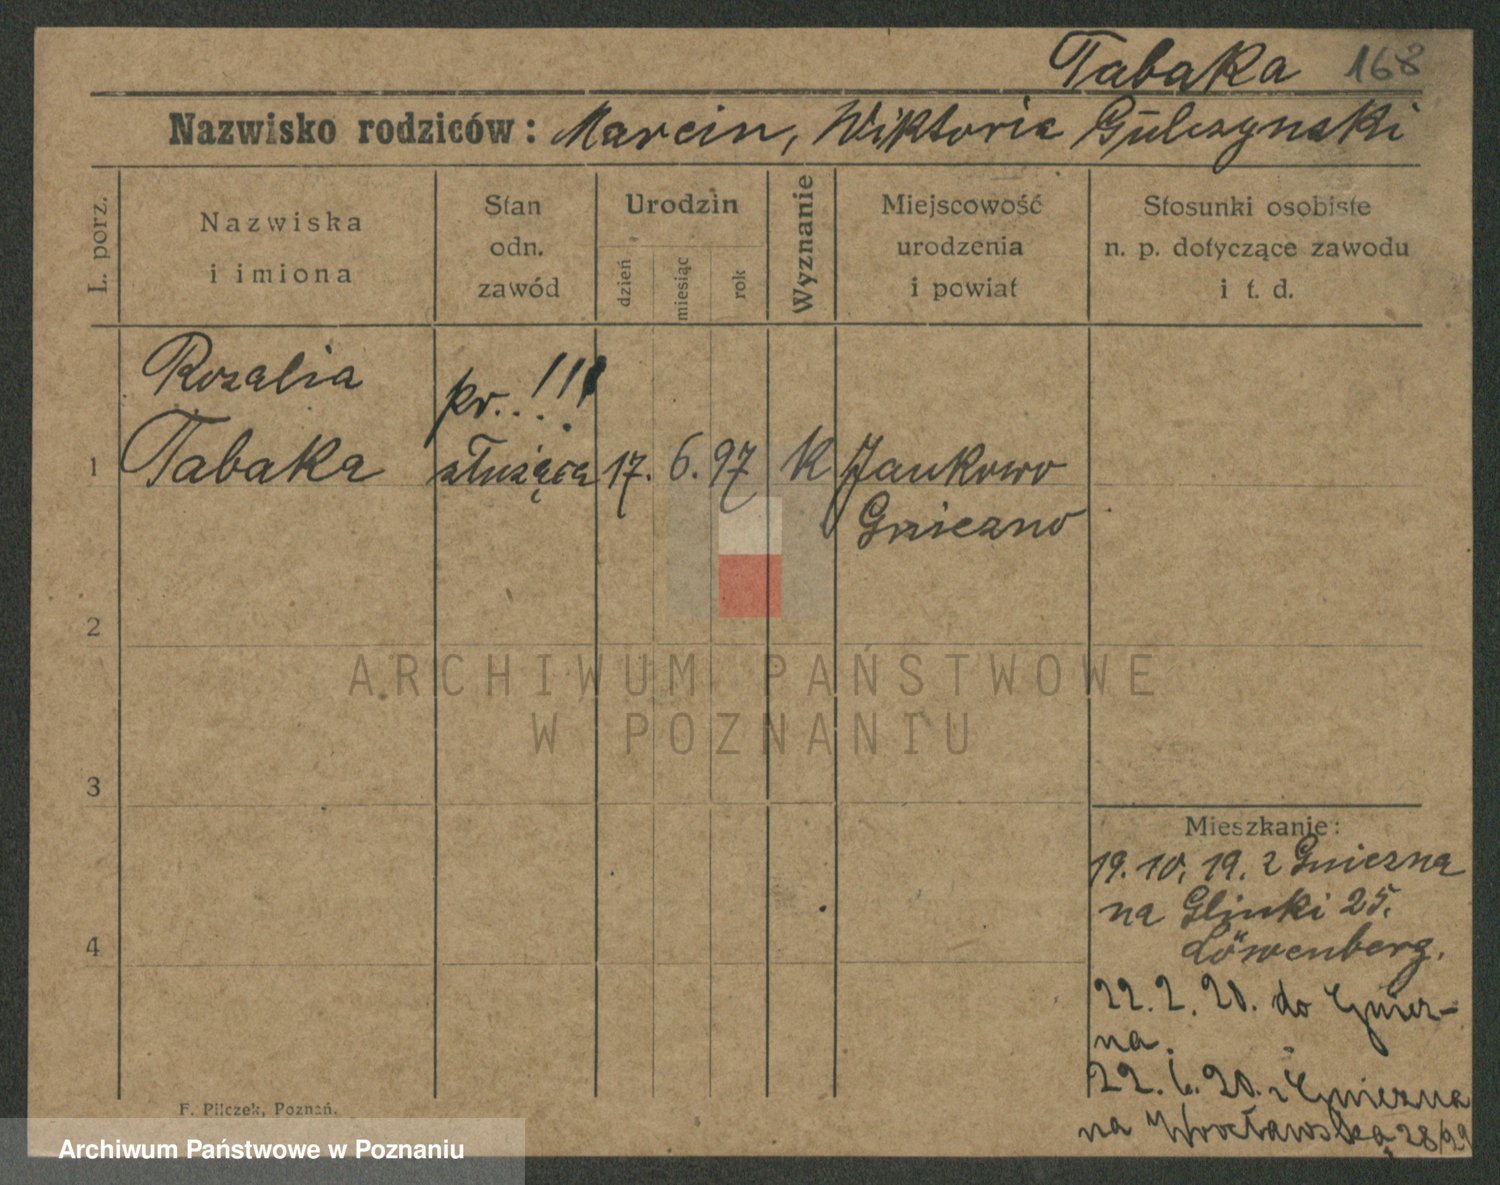 Tabaka 168
Nazwisko rodziców: Marcin, Wiktoria Gulczynski
L. porz.
Nazwiska
i imiona
Stan
odn.
zawód
Urodzin
dzień
miesiąc
rok
Wyznanie
Miejscowość
urodzenia
i powiat
Stosunki osobiste
n. p. dotyczące zawodu
i t. d.
Rozalia
pr..!!!
1 Tabaka służąca 17. 6. 97 K Jankowo
Gniezno
2
3
4
ARCHIWUM PAŃSTWOWE
W POZNANIU
Mieszkanie:
19. 10. 19. z Gniezna
na Glinki 25.
Löwenberg.
22. 2. 20. do Gniez-
na.
22. 6. 20. z Gniezna
na Wrocławską 28/29
F. Pilczek, Poznań.
Archiwum Państwowe w Poznaniu